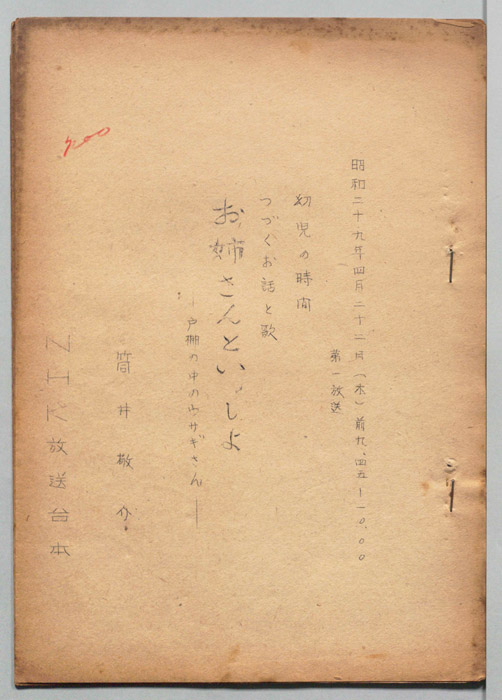 昭和二十九年四月二十二日(木)前九、四五―一〇、〇〇
第一放送
幼児の時間
つづくお話と歌
お姉さんといっしょ
―戸棚の中のウサギさん―
筒井敬介
NHK放送台本